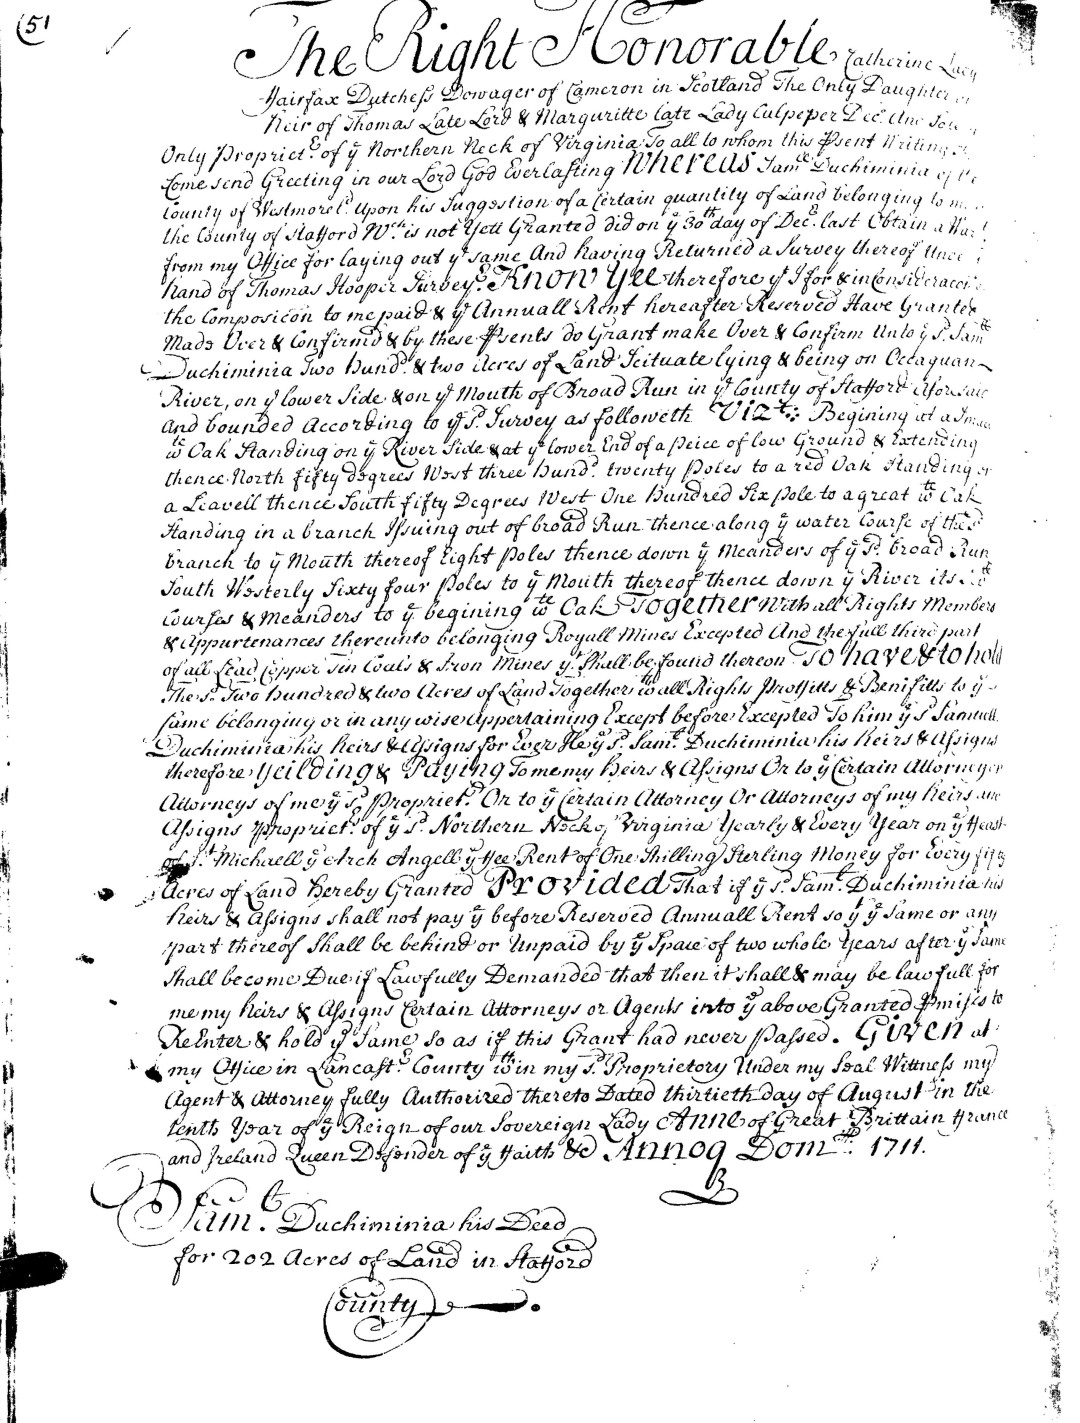 (51
The Right Honorable Catherine Lady
Fairfax Dutchess Dowager of Cameron in Scotland The Only Daughter
Heir of Thomas Late Lord & Marguritte late Lady Culpeper Dec.d And Sole
Only Propriet.rs of ye Northern Neck of Virginia To all to whom this Psent Writing
Come send Greeting in our Lord God Everlasting Whereas Sam.ll Duchiminia of ye
County of Westmorel.d Upon his Suggestion of a Certain quantity of Land belonging to me
the County of Stafford Wch. is not Yett Granted did on ye 30th day of Dec.r last Obtain a War.t
from my Office for laying out ye same And having Returned a Survey thereof Unde
hand of Thomas Hooper Survey.r Know Yee therefore yt I for & in Consideracon
the Composicon to me paid & ye Annuall Rent hereafter Reserved Have Granted
Made Over & Confirmd & by these Psents do Grant make Over & Confirm Unto ye Sd. Sam.ll
Duchiminia Two hund.d & two Acres of Land Scituate lying & being on Occaquan
River, on ye lower Side & on ye Mouth of Broad Run in ye County of Stafford Aforsaid
And bounded According to ye Sd. Survey as followeth Vizt.: Begining at a Small
wte Oak Standing on ye River Side & at ye lower End of a Peice of low Ground & Extending
thence North fifty degrees West three hund.d twenty Poles to a red Oak Standing on
a Leavell thence South fifty Degrees West One Hundred Six pole to a great wte Oak
Standing in a branch Issuing out of broad Run thence along ye water Course of the Sd
branch to ye Mouth thereof Eight Poles thence down ye Meanders of ye Sd. broad Run
South Westerly Sixty four Poles to ye Mouth thereof thence down ye River its
Courses & Meanders to ye begining wte Oak Together With all Rights Members
& Appurtenances thereunto belonging Royall Mines Excepted And the full third part
of all Lead Copper Tin Coals & Iron Mines yt Shall be found thereon To have & to hold
The Sd. Two hundred & two Acres of Land Together wth all Rights Proffitts & Benifitts to ye
same belonging or in any wise Appertaining Except before Excepted To him ye Sd Samuell
Duchiminia his heirs & Assigns for Ever He ye Sd. Sam.ll Duchiminia his heirs & Assigns
therefore Yeilding & Paying To me my heirs & Assigns Or to ye Certain Attorney or
Attorneys of me ye Sd. Propriet.r Or to ye Certain Attorney Or Attorneys of my heirs and
Assigns Propriet.rs of ye Sd. Northern Neck of Virginia Yearly & Every Year on ye Feast
of St. Michaell ye Arch Angell ye Fee Rent of One Shilling Sterling Money for Every fifty
Acres of Land hereby Granted Provided That if ye Sd. Sam.ll Duchiminia his
heirs & Assigns shall not pay ye before Reserved Annuall Rent so yt ye Same or any
part thereof Shall be behind or Unpaid by ye Space of two whole Years after ye Same
Shall become Due if Lawfully Demanded that then it shall & may be lawfull for
me my heirs & Assigns Certain Attorneys or Agents into ye above Granted Pmises to
ReEnter & hold ye Same so as if this Grant had never Passed. Given at
my Office in Lancast.r County wthin my Sd. Proprietory Under my Seal Wittness my
Agent & Attorney fully Authorized thereto Dated thirtieth day of August in the
tenth Year of ye Reign of our Sovereign Lady Anne of Great Brittain France
and Ireland Queen Defender of ye Faith &c Annoq Dom.ni 1711.
Sam.ll Duchiminia his Deed
for 202 Acres of Land in Stafford
County